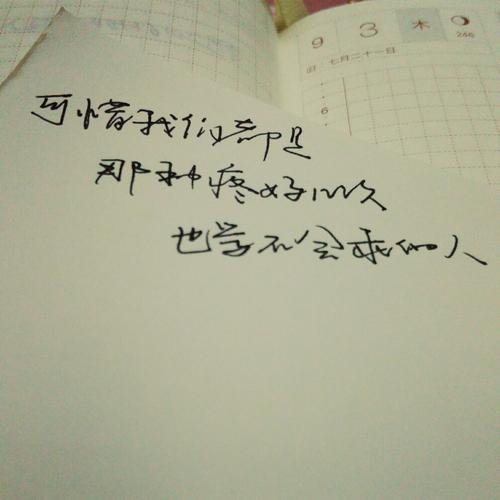 9 3 木
246
旧 七月二十一日
6
可惜我们都是
那种疼好次
也学不会的人